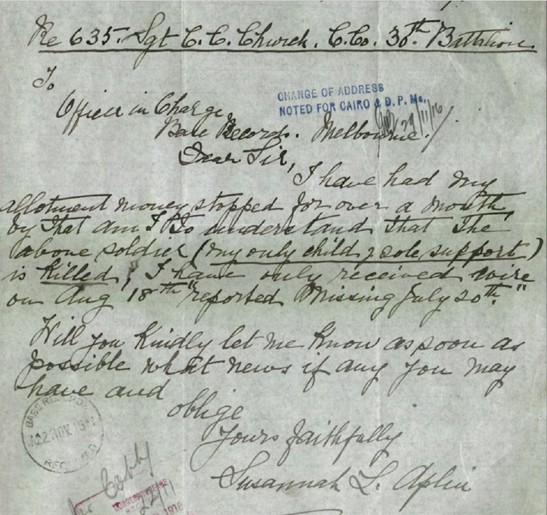 Re 635. Sgt C. C. Church. C. Co. 30th Battalion
To
Officer in Charge
Base Records. Melbourne.
CHANGE OF ADDRESS
NOTED FOR CAIRO & D. P. Ms.
29/11/16
Dear Sir,
I have had my
allotment money stopped for over a month,
by that am I to understand that the
above soldier (my only child & sole support)
is killed, I have only received wire
on Aug 18th "reported Missing July 20th."
Will you kindly let me know as soon as
possible what news if any you may
have and
oblige
Yours faithfully
Susannah L. Aplin
BASE RECORDS
22 NOV 1916